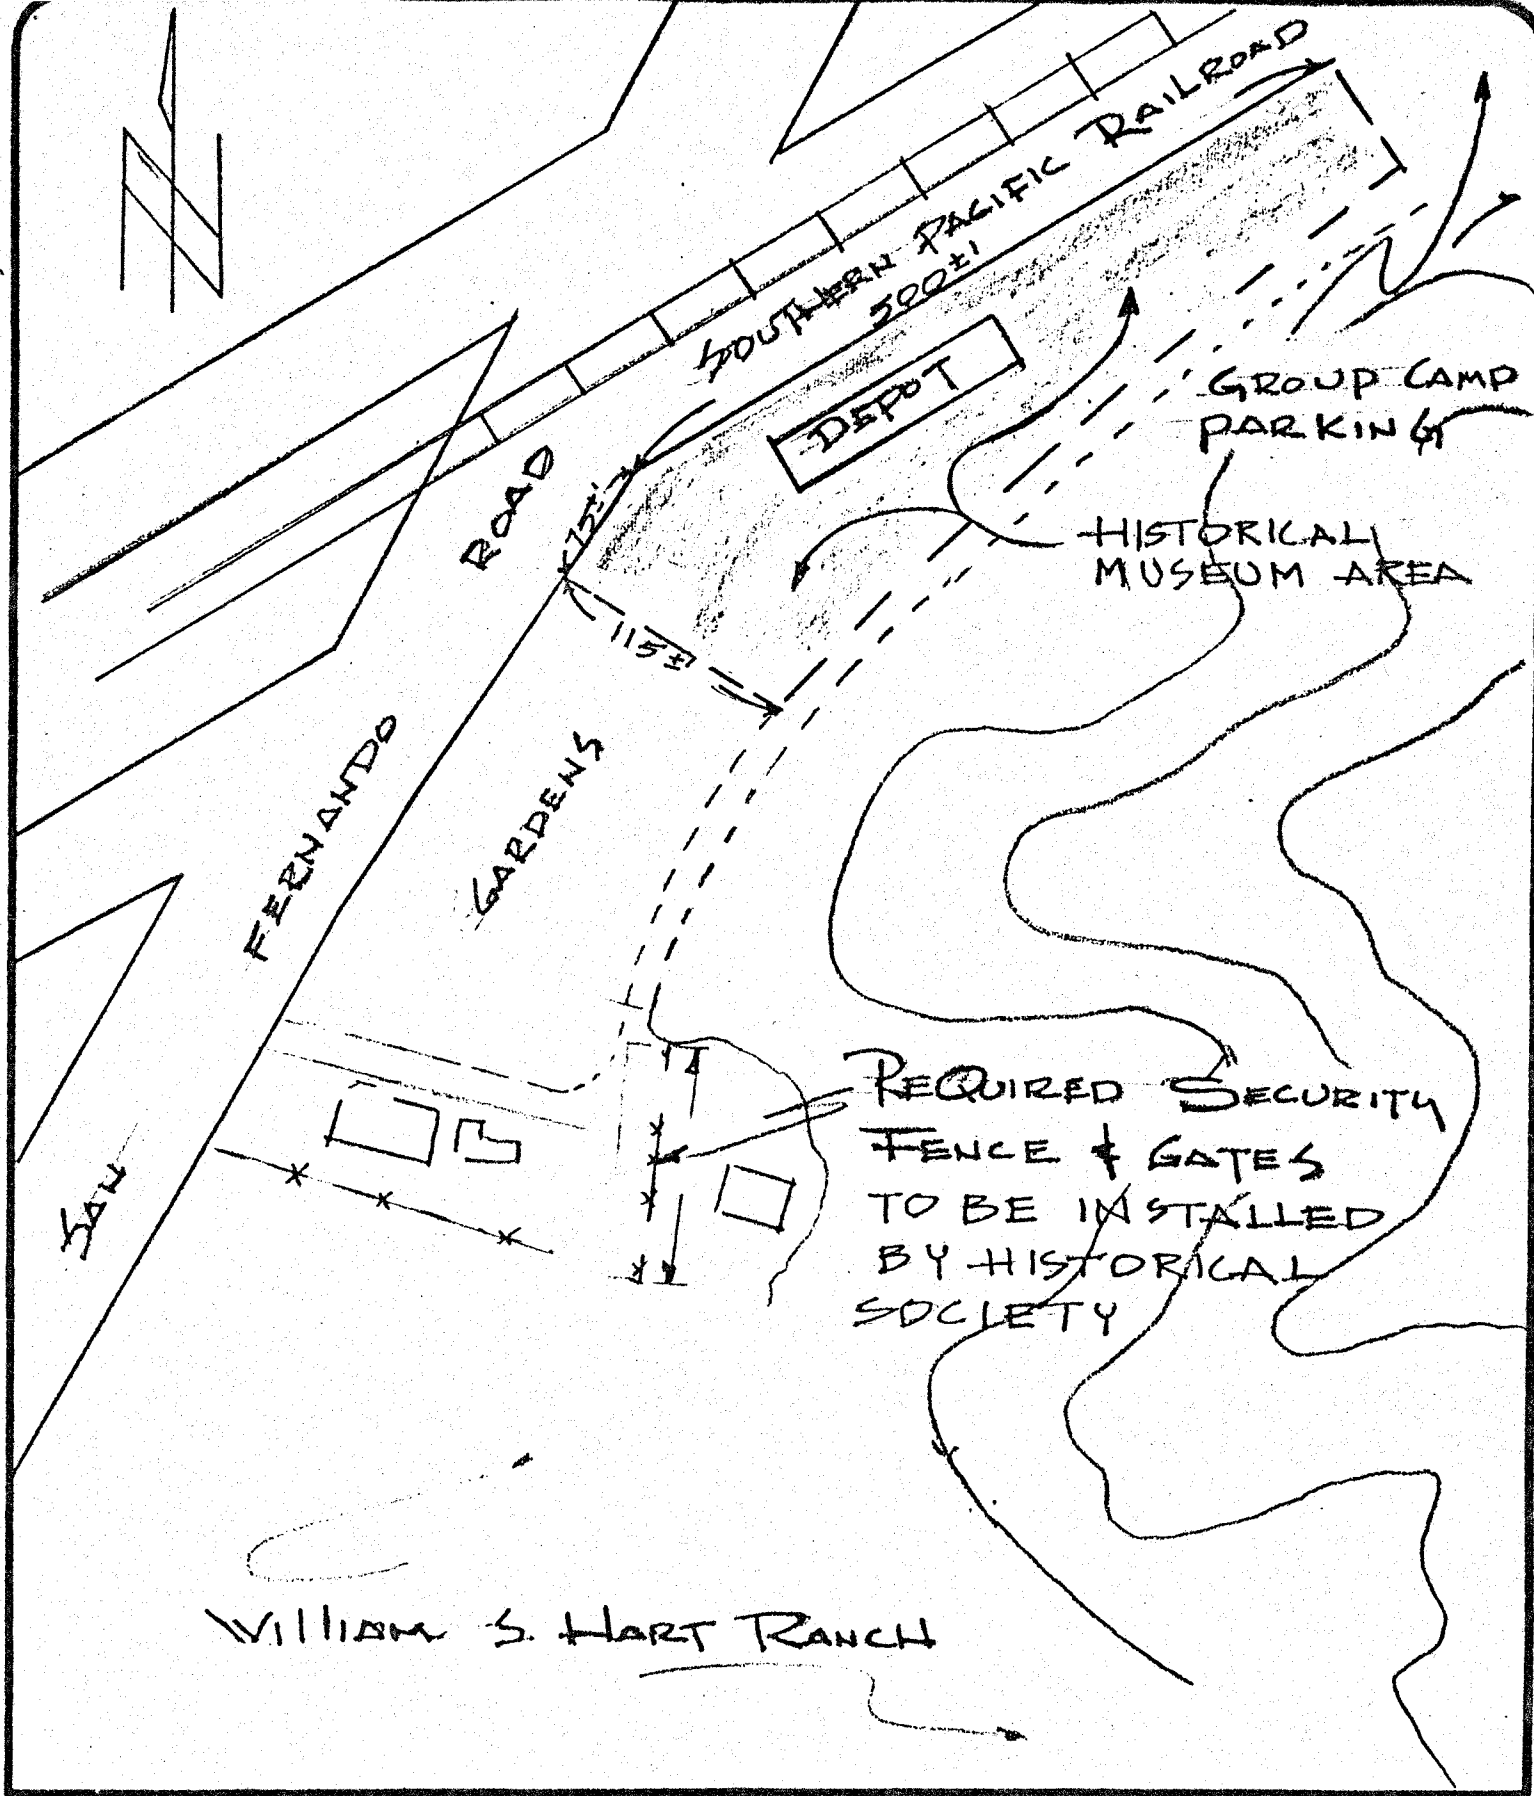 N
SOUTHERN PACIFIC RAILROAD
500±'
DEPOT
75±'
115±
GROUP CAMP
PARKING
HISTORICAL
MUSEUM AREA
SAN FERNANDO ROAD
GARDENS
REQUIRED SECURITY
FENCE & GATES
TO BE INSTALLED
BY HISTORICAL
SOCIETY
WILLIAM S. HART RANCH